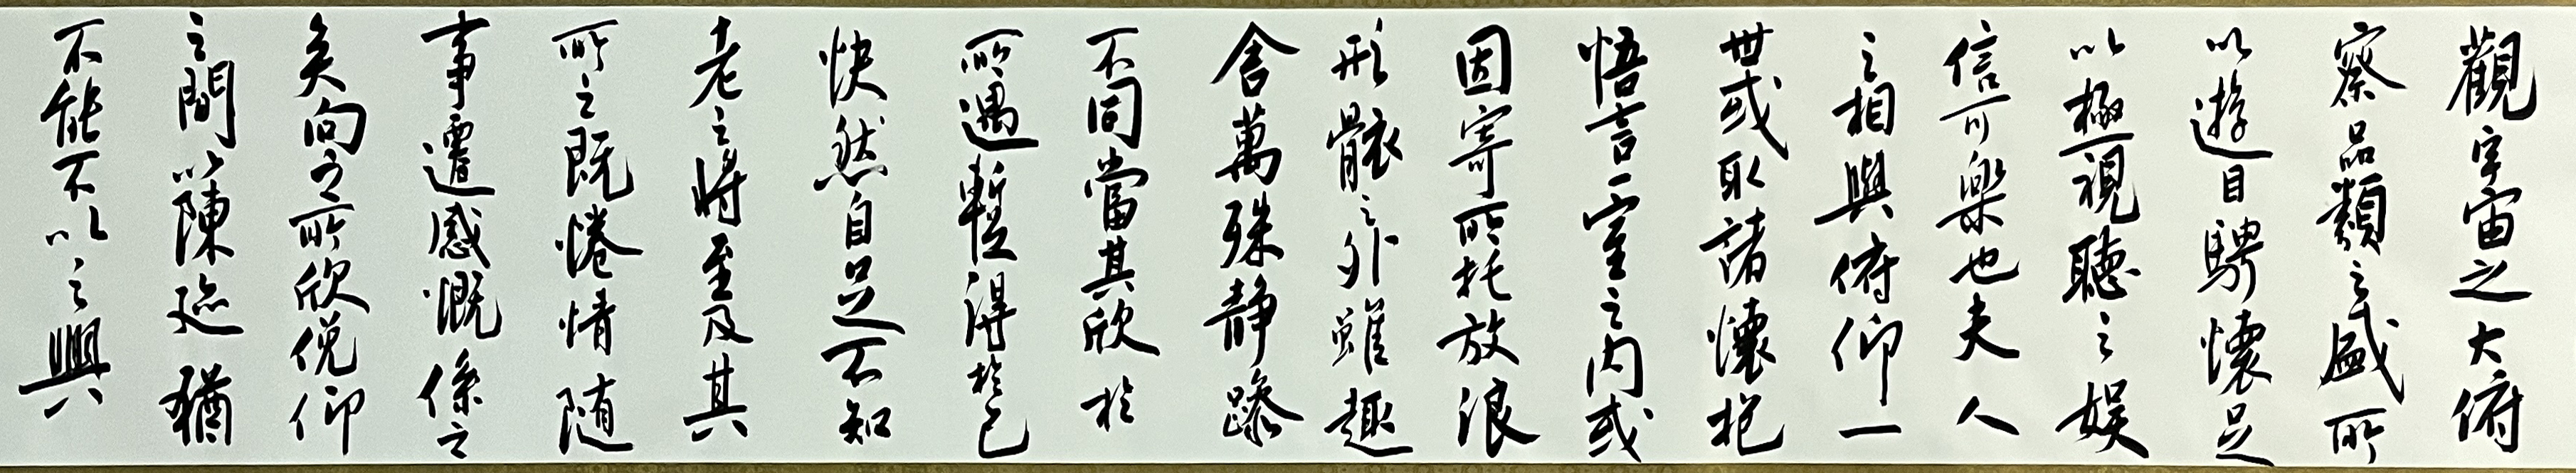 觀宇宙之大俯
察品類之盛所
以遊目騁懷足
以極視聽之娱
信可樂也夫人
之相與俯仰一
世或取諸懷抱
悟言一室之内或
因寄所托放浪
形骸之外雖趣
舍萬殊静躁
不同當其欣於
所遇暫得於己
快然自足不知
老之將至及其
所之既惓情随
事遷感慨係之
矣向之所欣俛仰
之間以陳迹猶
不能不以之興